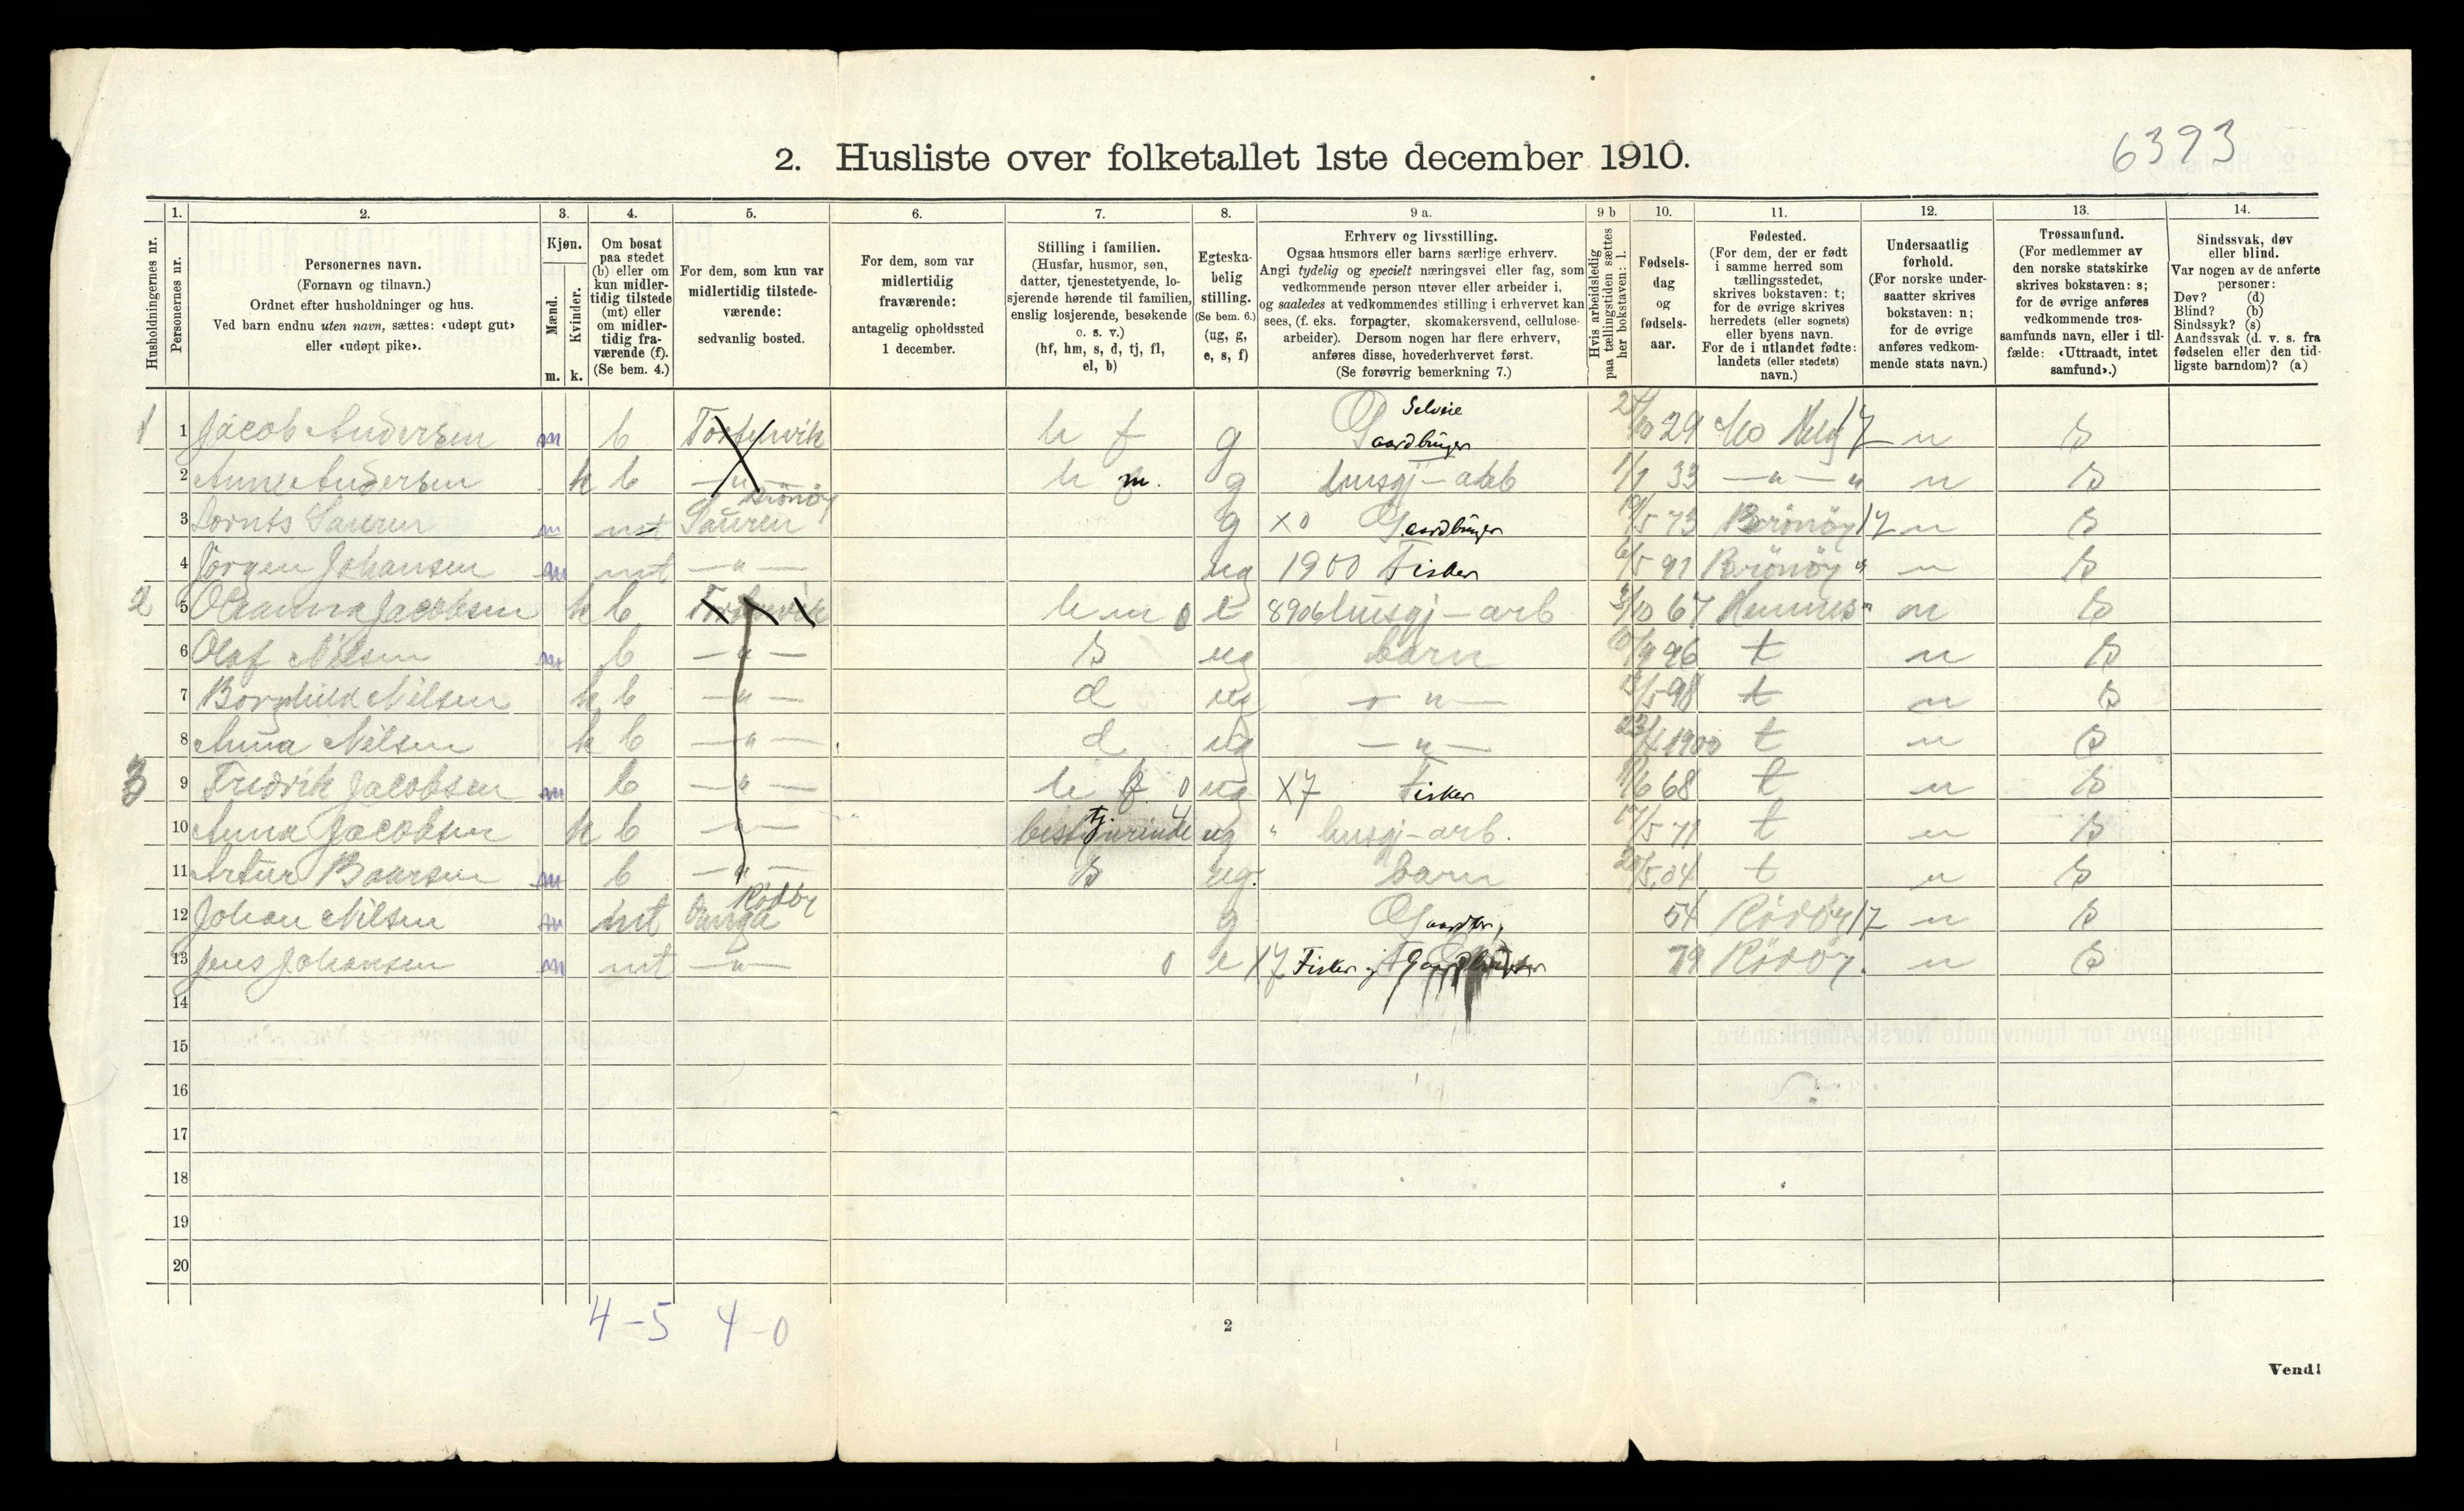 6393
2. Husliste over folketallet 1ste december 1910.
Husholdningernes nr.
1. Personernes nr.
2. Personernes navn.
(Fornavn og tilnavn.)
Ordnet efter husholdninger og hus.
Ved barn endnu uten navn, sættes: «udøpt gut»
eller «udøpt pike».
3. Kjøn.
Mænd. m.
Kvinder. k.
4. Om bosat
paa stedet
(b) eller om
kun midler-
tidig tilstede
(mt) eller
om midler-
tidig fra-
værende (f).
(Se bem. 4.)
5. For dem, som kun var
midlertidig tilstede-
værende:
sedvanlig bosted.
6. For dem, som var
midlertidig
fraværende:
antagelig opholdssted
1 december.
7. Stilling i familien.
(Husfar, husmor, søn,
datter, tjenestetyende, lo-
sjerende hørende til familien,
enslig losjerende, besøkende
o. s. v.)
(hf, hm, s, d, tj, fl,
el, b)
8. Egteska-
belig
stilling.
(Se bem. 6.)
(ug, g,
e, s, f)
9 a. Erhverv og livsstilling.
Ogsaa husmors eller barns særlige erhverv.
Angi tydelig og specielt næringsvei eller fag, som
vedkommende person utøver eller arbeider i,
og saaledes at vedkommendes stilling i erhvervet kan
sees, (f. eks. forpagter, skomakersvend, cellulose-
arbeider). Dersom nogen har flere erhverv,
anføres disse, hovederhvervet først.
(Se forøvrig bemerkning 7.)
9 b Hvis arbeidsledig
paa tællingstiden sættes
her bokstaven: l.
10. Fødsels-
dag
og
fødsels-
aar.
11. Fødested.
(For dem, der er født
i samme herred som
tællingsstedet,
skrives bokstaven: t;
for de øvrige skrives
herredets (eller sognets)
eller byens navn.
For de i utlandet fødte:
landets (eller stedets)
navn.)
12. Undersaatlig
forhold.
(For norske under-
saatter skrives
bokstaven: n;
for de øvrige
anføres vedkom-
mende stats navn.)
13. Trossamfund.
(For medlemmer av
den norske statskirke
skrives bokstaven: s;
for de øvrige anføres
vedkommende tros-
samfunds navn, eller i til-
fælde: «Uttraadt, intet
samfund».)
14. Sindssvak, døv
eller blind.
Var nogen av de anførte
personer:
Døv? (d)
Blind? (b)
Sindssyk? (s)
Aandssvak (d. v. s. fra
fødselen eller den tid-
ligste barndom)? (a)
1 1 Jacob Andersen m b h f g Selveie Gaardbruger 29 Mo n s
2 Anne Andersen k b — " — h m. g husgj-arb 1/1 33 — " — " n s
3 Lornts Sauren m mt Sauren Brönöy g X0 Gaardbruger 19/5 73 Brönöy n s
4 Jörgen Johansen m mt — " — ug 1900 Fisker 6/5 91 Brönöy " n s
2 5 Oleanna Jacobsen k b h m 0 e 8906 husgj-arb 3/10 67 n s
6 Olaf Nilsen m b — " — s ug barn 96 t n s
7 Borghild Nilsen k b — " — d ug — " — 98 t n s
8 Anna Nilsen k b — " — d ug — " — 1900 t n s
3 9 Fredrik Jacobsen m b — " — h f 0 ug X7 Fisker 68 t n s
10 Anna Jacobsen k b — " — bestyrerinde tj. 4 ug " husgj-arb. 17/5 71 t n s
11 Artur Baarsen m b — " — s ug. barn 04 t n s
12 Johan Nilsen m mt Rödöy g Gaardbr, 54 Rödöy n s
13 Jens Johansen m mt — " — 0 e X7 Fisker og 79 Rödöy. n s
14
15
16
17
18
19
20
4-5 4-0
2
Vend!